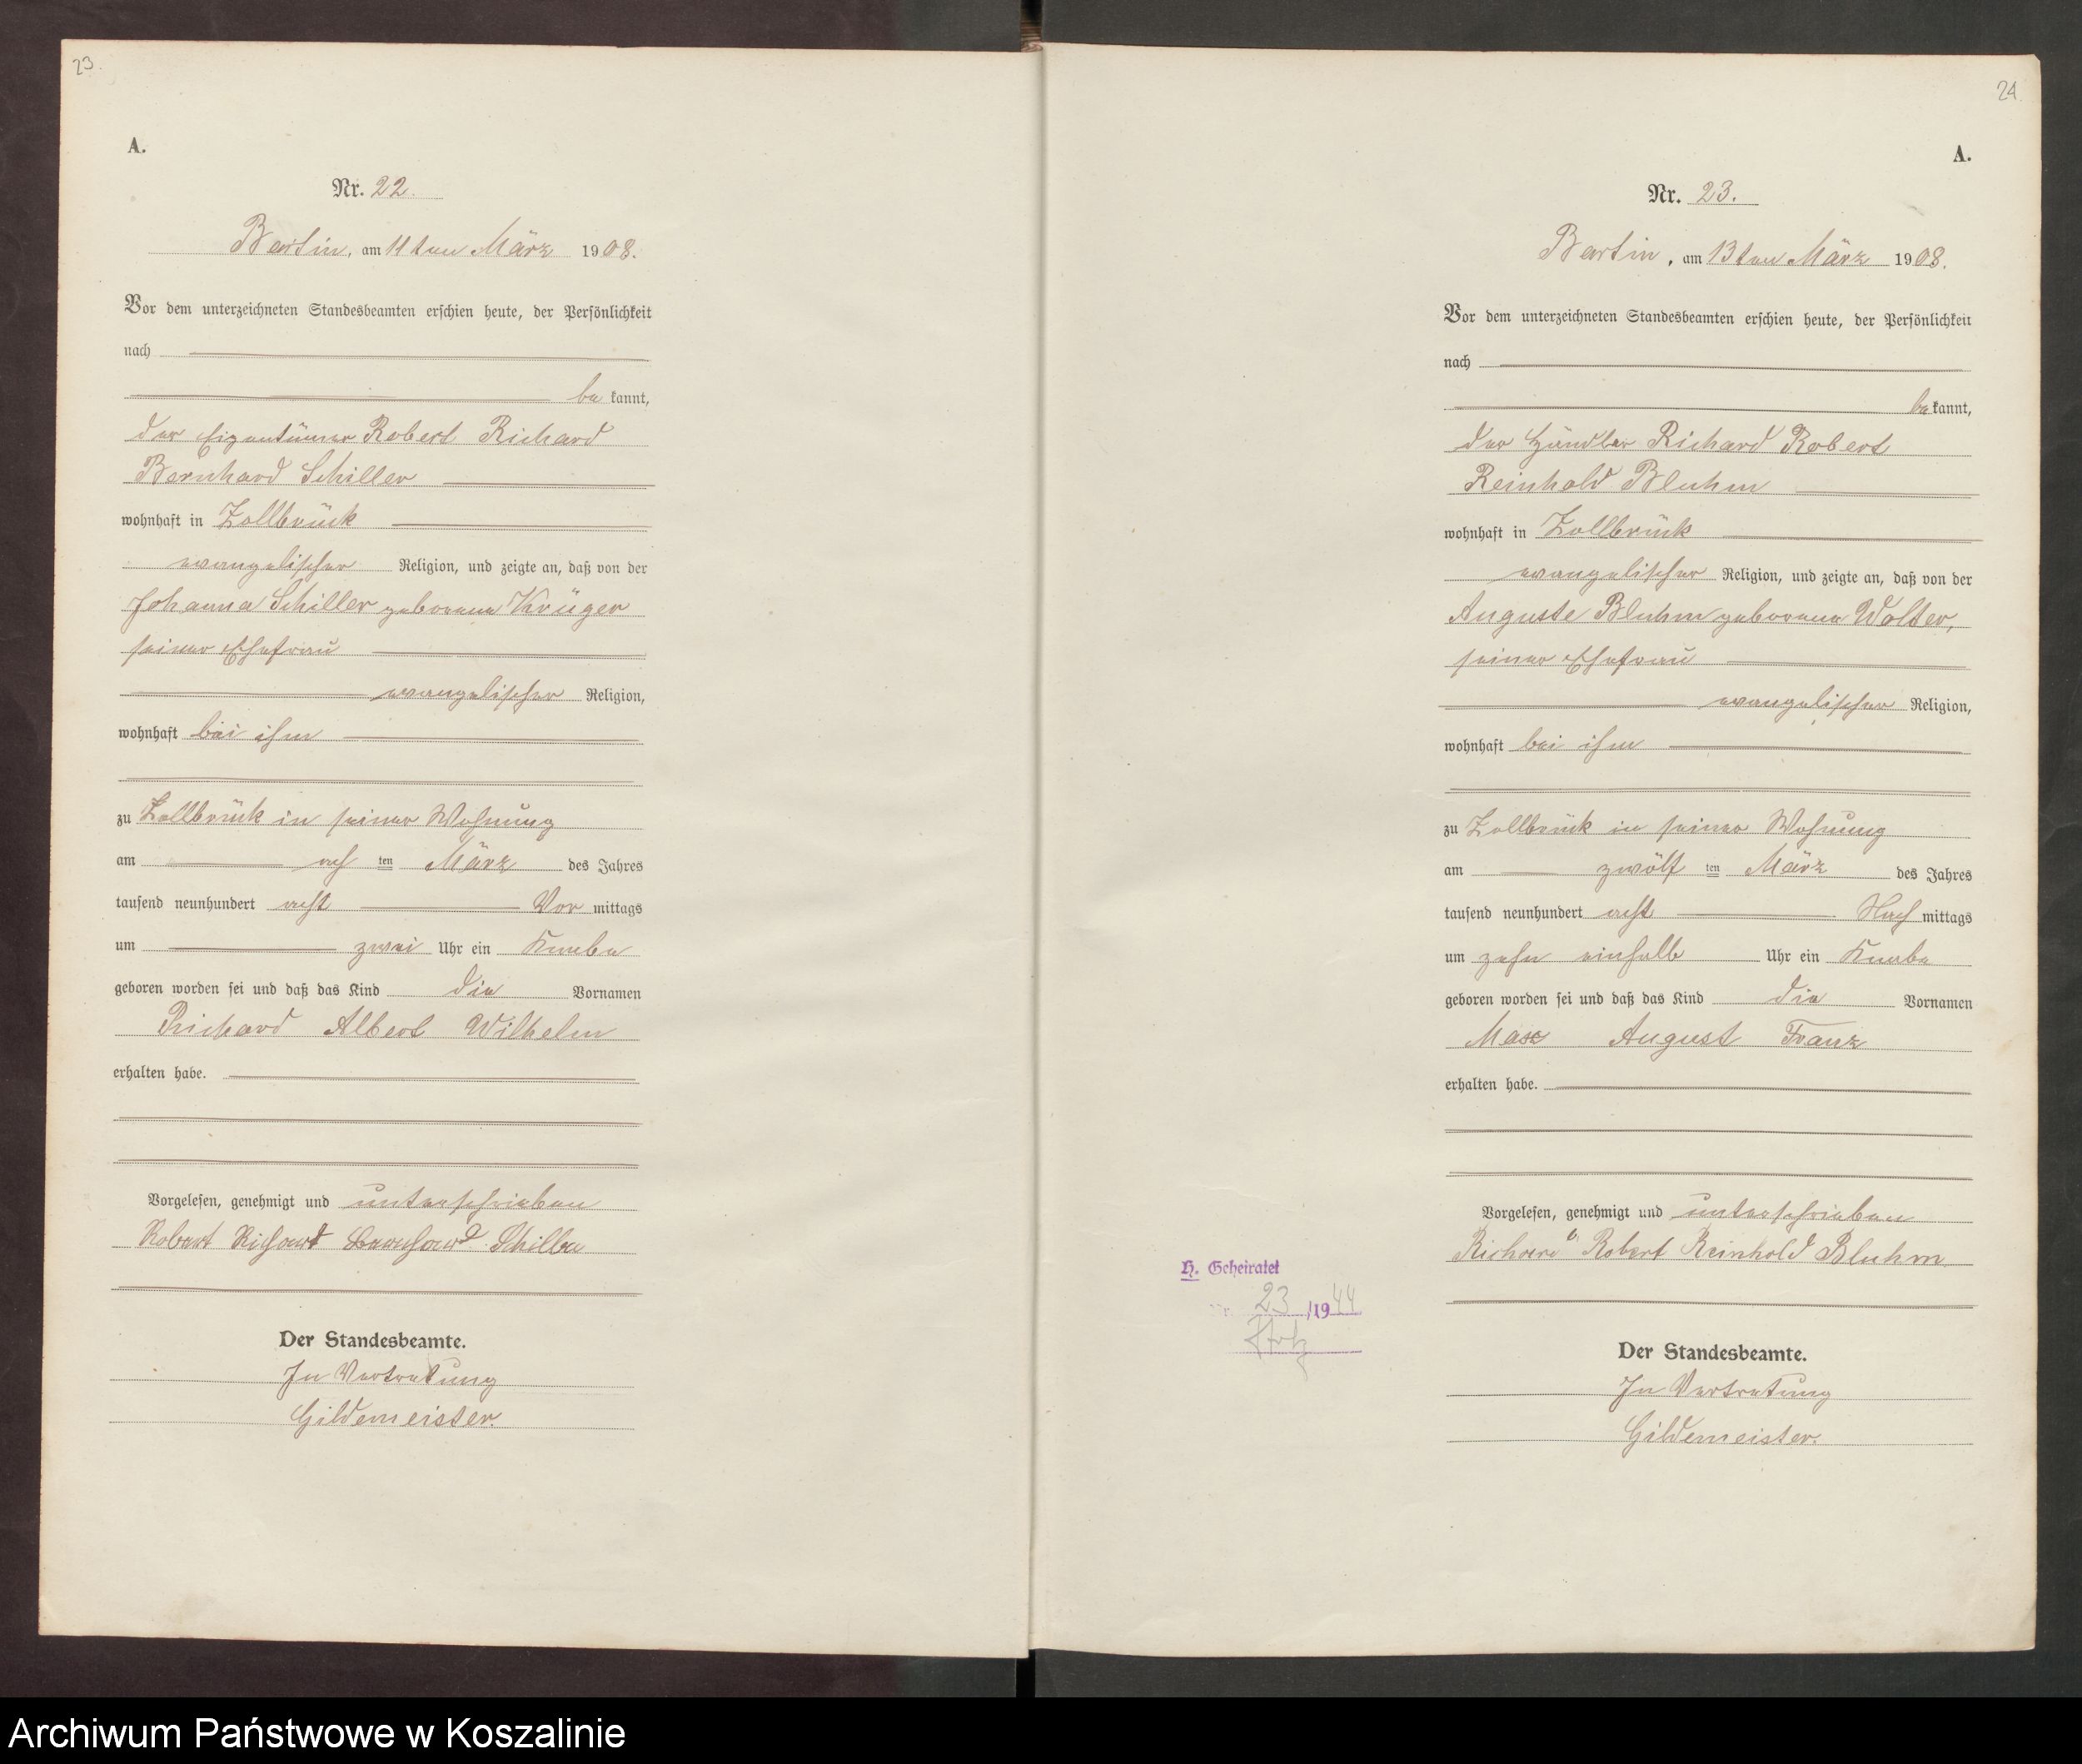 23.
A.
Nr. 22.
Bartin, am 11ten März 1908.
Vor dem unterzeichneten Standesbeamten erschien heute, der Persönlichkeit
nach
bekannt,
der Eigentümer Robert Richard
Bernhard Schiller
wohnhaft in Zollbrück
evangelischer Religion, und zeigte an, daß von der
Johanna Schiller geborene Krüger
seiner Ehefrau
evangelischer Religion,
wohnhaft bei ihm
zu Zollbrück in seiner Wohnung
am achten März des Jahres
tausend neunhundert acht Vormittags
um zwei Uhr ein Knabe
geboren worden sei und daß das Kind die Vornamen
Richard Albert Wilhelm
erhalten habe.
Vorgelesen, genehmigt und unterschrieben
Robert Richard Bernhard Schiller
Der Standesbeamte.
In Vertretung
Gildemeister.
24
A.
Nr. 23.
Bartin, am 13ten März 1908.
Vor dem unterzeichneten Standesbeamten erschien heute, der Persönlichkeit
nach
bekannt,
der Händler Richard Robert
Reinhold Bluhm
wohnhaft in Zollbrück
evangelischer Religion, und zeigte an, daß von der
Auguste Bluhm geborene Wolter,
seiner Ehefrau
evangelischer Religion,
wohnhaft bei ihm
zu Zollbrück in seiner Wohnung
am zwölften März des Jahres
tausend neunhundert acht Nachmittags
um zehn einhalb Uhr ein Knabe
geboren worden sei und daß das Kind die Vornamen
Max August Franz
erhalten habe.
Vorgelesen, genehmigt und unterschrieben
Richard Robert Reinhold Bluhm
H. Geheiratet
Nr. 23/1944
Der Standesbeamte.
In Vertretung
Gildemeister.
Archiwum Państwowe w Koszalinie